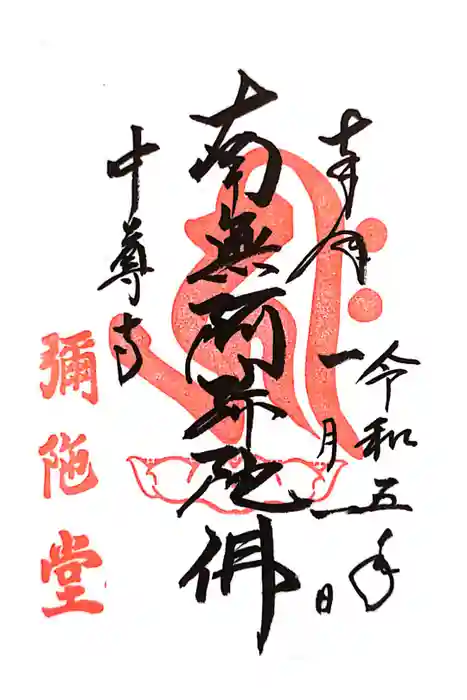 奉拝
令和五年
一月一日
南無阿弥陀佛
中尊寺
彌陁堂